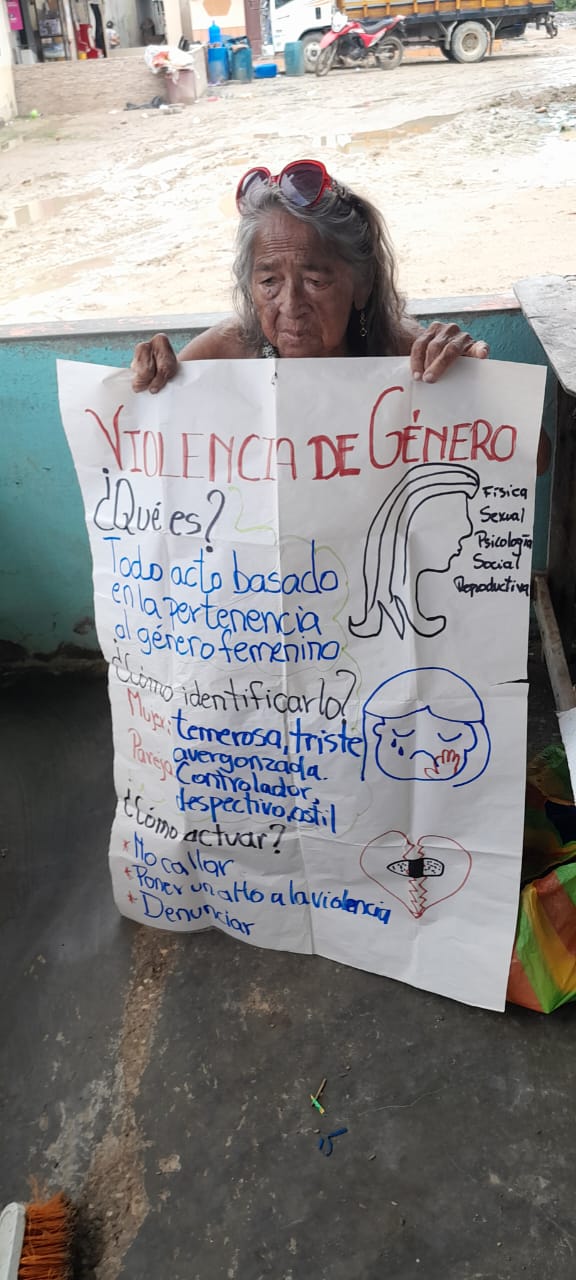 VIOLENCIA DE GÉNERO
¿Qué es?
Todo acto basado
en la pertenencia
al género femenino
Física
Sexual
Psicología
Social
Reproductiva
¿Cómo identificarlo?
Mujer: temerosa, triste
avergonzada.
Pareja: Controlador,
despectivo, ostil
¿Cómo actuar?
* No callar
* Poner un alto a la violencia
* Denunciar